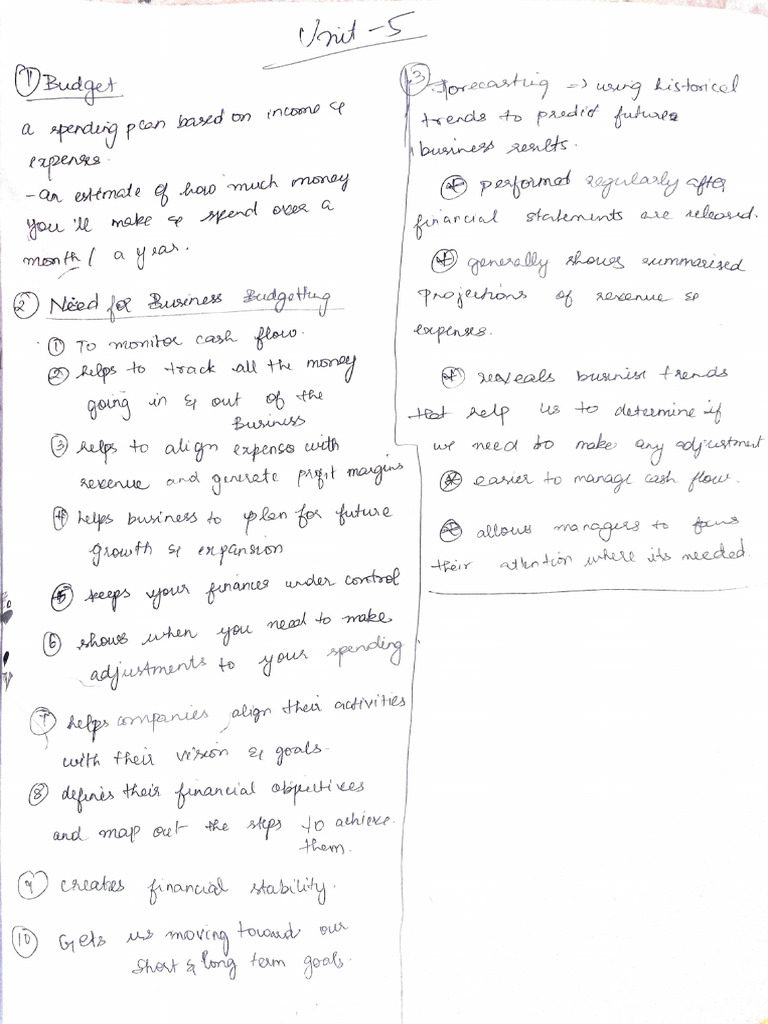 Unit - 5
① Budget
a spending plan based on income &
expenses.
- an estimate of how much money
you'll make & spend over a
month / a year.
② Need for Business Budgetting
① To monitor cash flow.
② helps to track all the money
going in & out of the
Business
③ helps to align expense with
revenue and generate profit margins
④ helps business to plan for future
growth & expansion
⑤ keeps your finances under control
⑥ shows when you need to make
adjustments to your spending
⑦ helps companies align their activities
with their vision & goals.
⑧ defines their financial objectives
and map out the steps to achieve
them.
⑨ creates financial stability.
⑩ Gets us moving toward our
short & long term goals.
③ Forecasting => using historical
trends to predict future
business results.
* performed regularly after
financial statements are released.
* generally shows summarised
projections of revenue &
expenses.
* reveals business trends
that help us to determine if
we need to make any adjustment
* easier to manage cash flow.
* allows managers to focus
their attention where its needed.